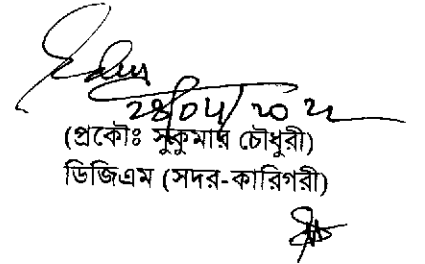 28/04/2022
(প্রকৌঃ সুকুমার চৌধুরী)
ডিজিএম (সদর-কারিগরী)